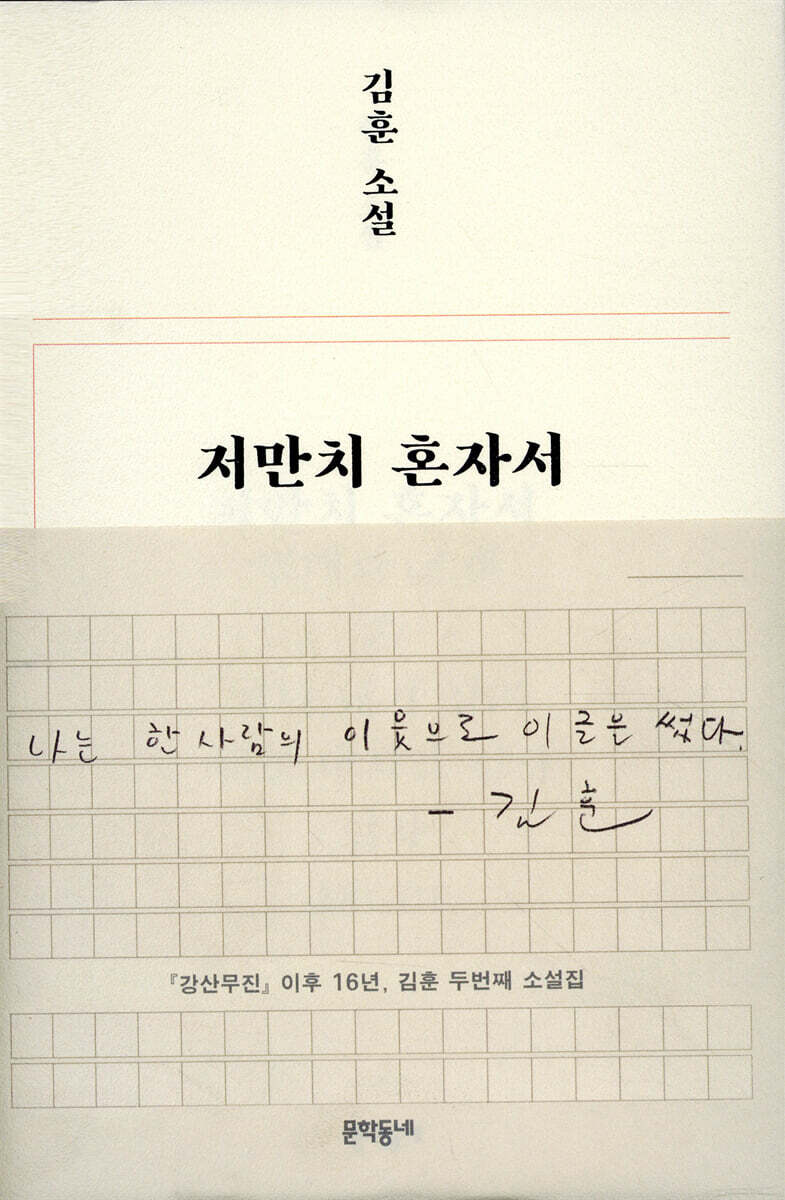 김훈 소설
저만치 혼자서
나는 한 사람의 이웃으로 이 글을 썼다.
- 김훈
『강산무진』 이후 16년, 김훈 두번째 소설집
문학동네